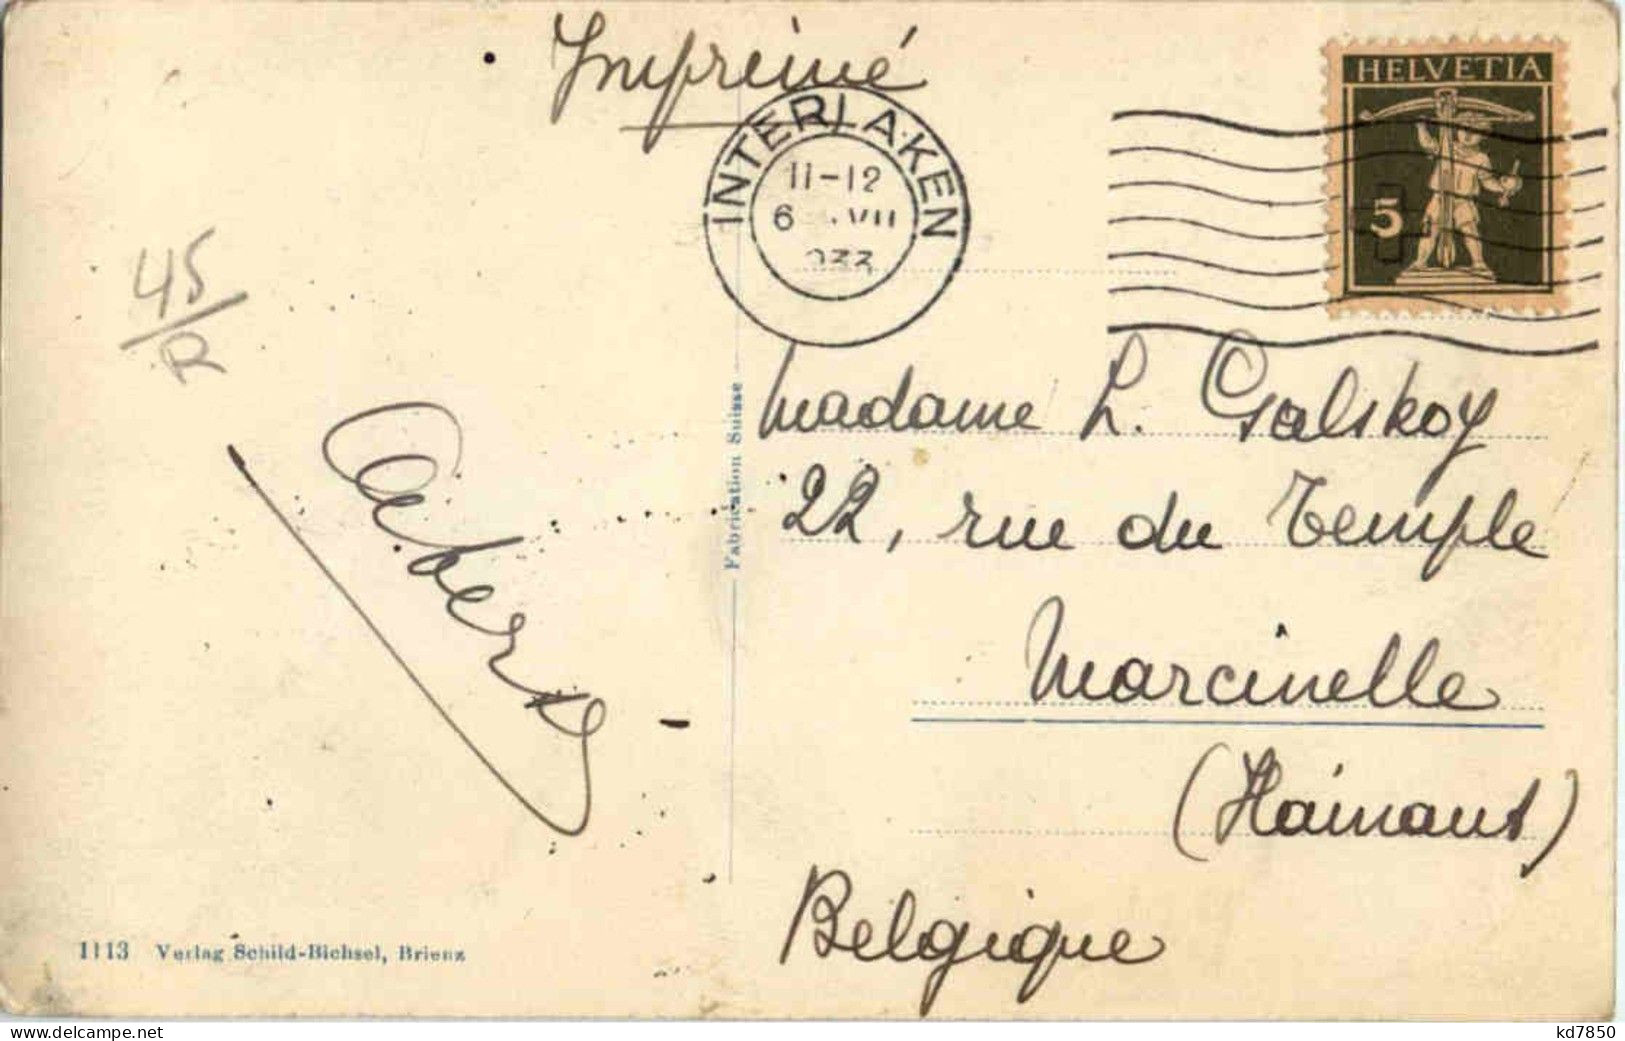 Imprimé
HELVETIA
5
INTERLAKEN
11-12
6 VII
33
45
R
Madame L. Galskoy
22, rue du Temple
Marcinelle
(Hainaut)
Belgique
Fabrication Suisse
1113 Verlag Schild-Bichsel, Brienz
www.delcampe.net
kd7850